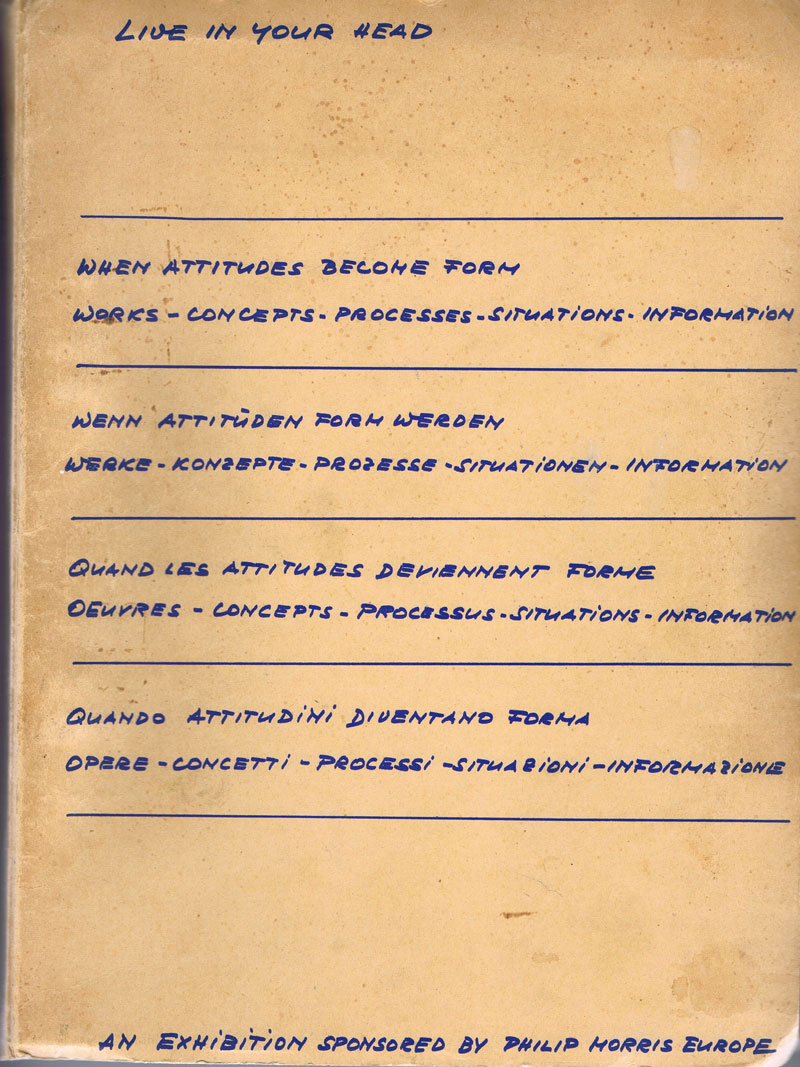 LIVE IN YOUR HEAD
WHEN ATTITUDES BECOME FORM
WORKS - CONCEPTS - PROCESSES - SITUATIONS - INFORMATION
WENN ATTITÜDEN FORM WERDEN
WERKE - KONZEPTE - PROZESSE - SITUATIONEN - INFORMATION
QUAND LES ATTITUDES DEVIENNENT FORME
OEUVRES - CONCEPTS - PROCESSUS - SITUATIONS - INFORMATION
QUANDO ATTITUDINI DIVENTANO FORMA
OPERE - CONCETTI - PROCESSI - SITUAZIONI - INFORMAZIONE
AN EXHIBITION SPONSORED BY PHILIP MORRIS EUROPE